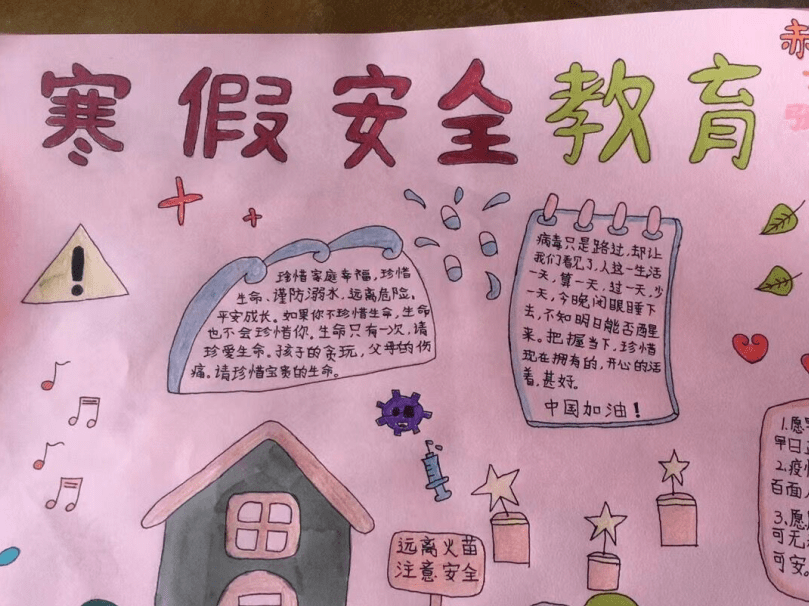 寒假安全教育
赤
珍惜家庭幸福,珍惜
生命、谨防溺水,远离危险。
平安成长。如果你不珍惜生命,生命
也不会珍惜你。生命只有一次,请
珍爱生命。孩子的贪玩,父母的伤
痛。请珍惜宝贵的生命。
病毒只是路过,却让
我们看见了,人这一生活
一天,算一天,过一天,少
一天,今晚闭眼睡下
去,不知明日能否酉星
来。把握当下,珍惜
现在拥有的,开心的活
着,甚好。
中国加油!
远离火苗
注意安全
1.愿
早日
2.疫情
百面
3.愿
可无
可安。